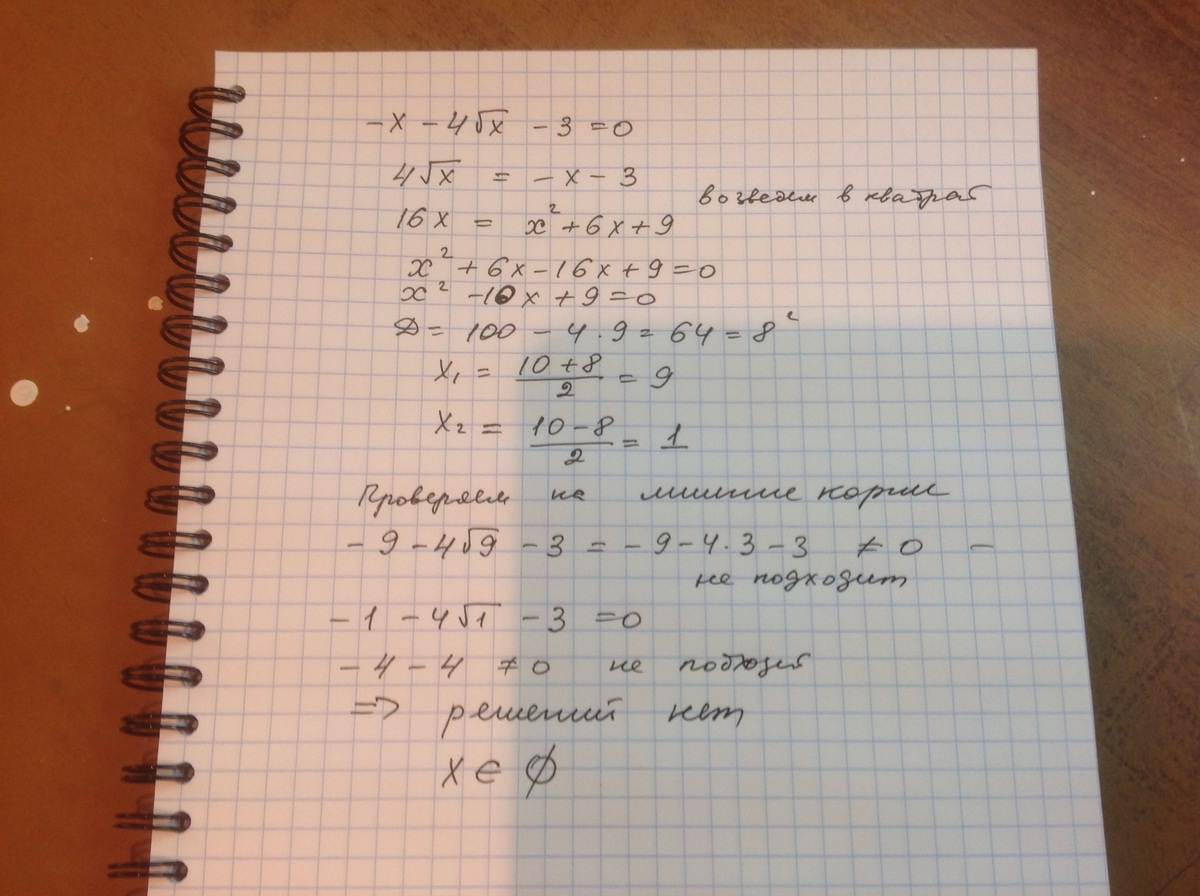 -x - 4√x - 3 = 0
4√x = -x - 3
возведем в квадрат
16x = x² + 6x + 9
x² + 6x - 16x + 9 = 0
x² - 10x + 9 = 0
D = 100 - 4 · 9 = 64 = 8²
x₁ = (10 + 8)/2 = 9
x₂ = (10 - 8)/2 = 1
Проверяем на лишние корни
-9 - 4√9 - 3 = -9 - 4 · 3 - 3 ≠ 0 -
не подходит
-1 - 4√1 - 3 = 0
-4 - 4 ≠ 0 не
=> решений нет
x ∈ ∅